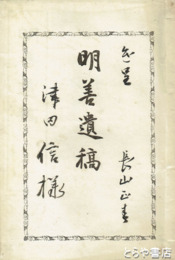 長山正春
明善遺稿
津田信様
とらや書店